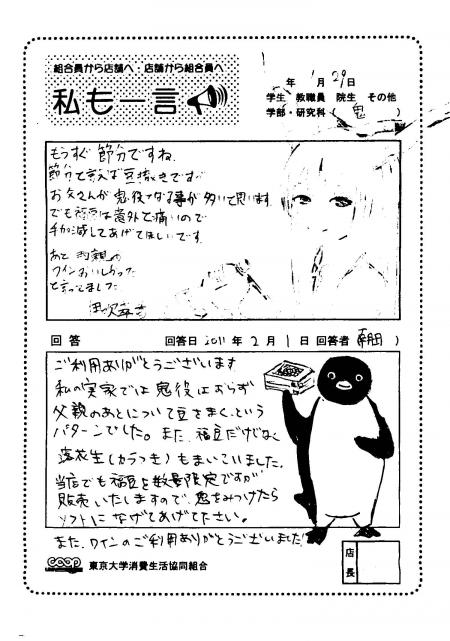 組合員から店舗へ・店舗から組合員へ
私も一言
年 1月29日
学生 教職員 院生 その他
学部・研究科(鬼)
もうすぐ節分ですね。
節分と言えば豆撒きですが
お父さんが鬼役になる事が多いと思います。
でも福豆は意外と痛いので
手加減してあげてほしいです。
あと 両親が
ワインおいしかった
と言ってました
回答 回答日 2011年2月1日 回答者(朝田)
ご利用ありがとうございます
私の実家では鬼役はおらず
父親のあとについて豆をまく、という
パターンでした。また、福豆だけでなく
落花生(カラつき)もまいていました。
当店でも福豆を数量限定ですが
販売いたしますので、鬼をみつけたら
ソフトになげてあげて下さい。
また、ワインのご利用ありがとうございました!
店長
coop 東京大学消費生活協同組合